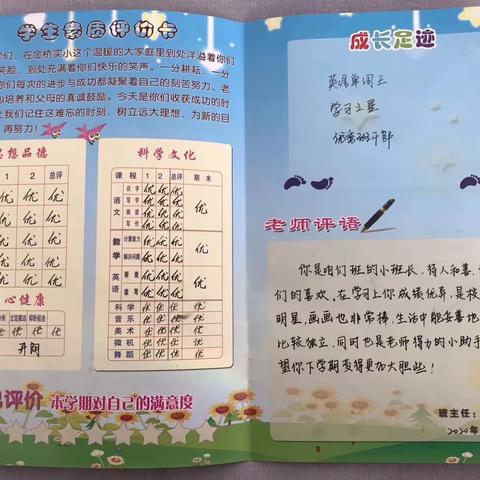 学生素质评价卡
们，在金桥实小这个温暖的大家庭里到处洋溢着你们
笑脸，到处充满着你们快乐的笑声。一分耕耘，一分
你们每次的进步与成功都凝聚着自己的刻苦努力、老
心培养和父母的真诚鼓励。今天是你们收获成功的时
让我们记住这难忘的时刻，树立远大理想，为新的目
再努力！
思想品德
1 2 总评
优 优 优
优 优 优
优 优 优
优 优 优
优 优 优
心健康
立定跳远 仰卧起坐
优 优 优
开朗
科学文化
课程 1 2 总评 期末
语文 识字 优 优 优 优
写字 优 优 优
阅读 优 优 优
写作 优 优 优
数学 计算能力 优 优 优 优
解决问题 优 优 优
英语 听说 优 优 优 优
读写 优 优 优
科学 优 优 优
音乐 优 优 优
美术 优 优 优
微机 优 优 优
舞蹈 优 优 优
评价 本学期对自己的满意度
成长足迹
英语单词王
学习之星
优秀班干部
老师评语
你是咱们班的小班长，待人和善，
们的喜欢，在学习上你成绩优异，是
明星，画画也非常棒，生活中能妥善地
比较独立，同时也是老师得力的小助手
望你下学期变得更加大胆些！
班主任：
2020年